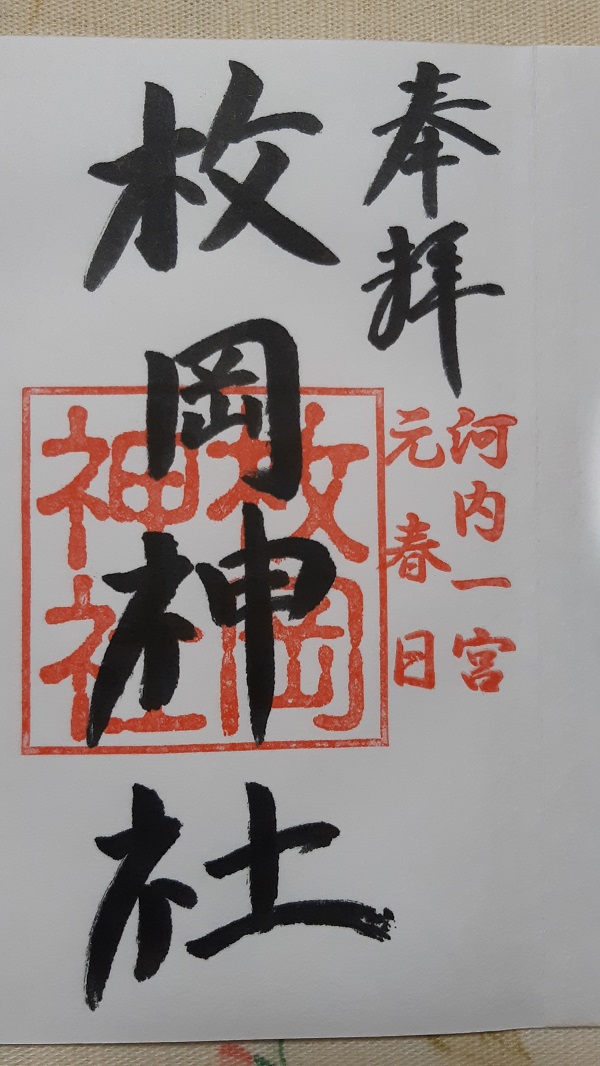 奉拝
河内一宮
元春日
枚岡神社
枚岡
神社